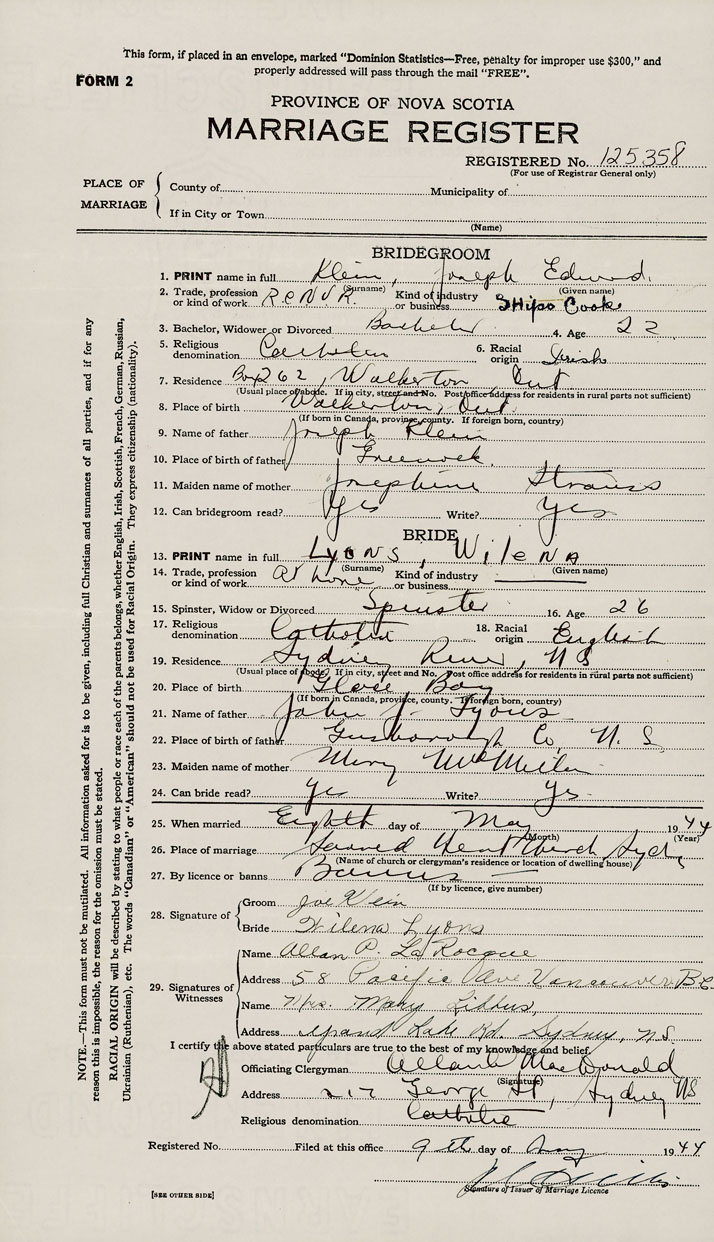 This form, if placed in an envelope, marked "Dominion Statistics—Free, penalty for improper use $300," and
properly addressed will pass through the mail "FREE".
FORM 2
PROVINCE OF NOVA SCOTIA
MARRIAGE REGISTER
REGISTERED No. 125358
(For use of Registrar General only)
PLACE OF MARRIAGE
County of Municipality of
If in City or Town
(Name)
BRIDEGROOM
1. PRINT name in full Klein, Joseph Edward.
(Surname) (Given name)
2. Trade, profession or kind of work R.C.N.V.R. Kind of industry or business Ships Cook
3. Bachelor, Widower or Divorced Bachelor 4. Age 22
5. Religious denomination Catholic 6. Racial origin Irish
7. Residence Box 262, Walkerton, Ont
(Usual place of abode. If in city, street and No. Post office address for residents in rural parts not sufficient)
8. Place of birth Walkerton, Ont.
(If born in Canada, province, county. If foreign born, country)
9. Name of father Joseph Klein
10. Place of birth of father Greenock
11. Maiden name of mother Josephine Strauss
12. Can bridegroom read? Yes Write? Yes
BRIDE
13. PRINT name in full Lyons, Wilena
(Surname) (Given name)
14. Trade, profession or kind of work At home Kind of industry or business
15. Spinster, Widow or Divorced Spinster 16. Age 26
17. Religious denomination Catholic 18. Racial origin English
19. Residence Sydney River, N S
(Usual place of abode. If in city, street and No. Post office address for residents in rural parts not sufficient)
20. Place of birth Glace Bay
(If born in Canada, province, county. If foreign born, country)
21. Name of father John J. Lyons
22. Place of birth of father Guysborough Co, N. S.
23. Maiden name of mother Mary
24. Can bride read? Yes Write? Yes
25. When married Eighth day of May 1944
(Month) (Year)
26. Place of marriage Sacred Heart Church Sydney
(Name of church or clergyman's residence or location of dwelling house)
27. By licence or banns Banns
(If by licence, give number)
28. Signature of
Groom Joe Klein
Bride Wilena Lyons
29. Signatures of Witnesses
Name Allan P. LaRocque
Address 58 Pacific Ave Vancouver B.C.
Name Mrs. Mary
Address Grand Lake Rd. Sydney, N.S.
I certify the above stated particulars are true to the best of my knowledge and belief.
Officiating Clergyman Allan MacDonald
(Signature)
Address George St, Sydney NS
Religious denomination Catholic
Registered No. Filed at this office 9th day of 1944
Signature of Issuer of Marriage Licence
[SEE OTHER SIDE]
NOTE.—This form must not be mutilated. All information asked for is to be given, including full Christian and surnames of all parties, and if for any
reason this is impossible, the reason for the omission must be stated.
RACIAL ORIGIN will be described by stating to what people or race each of the parents belongs, whether English, Irish, Scottish, French, German, Russian,
Ukrainian (Ruthenian), etc. The words "Canadian" or "American" should not be used for Racial Origin. They express citizenship (nationality).